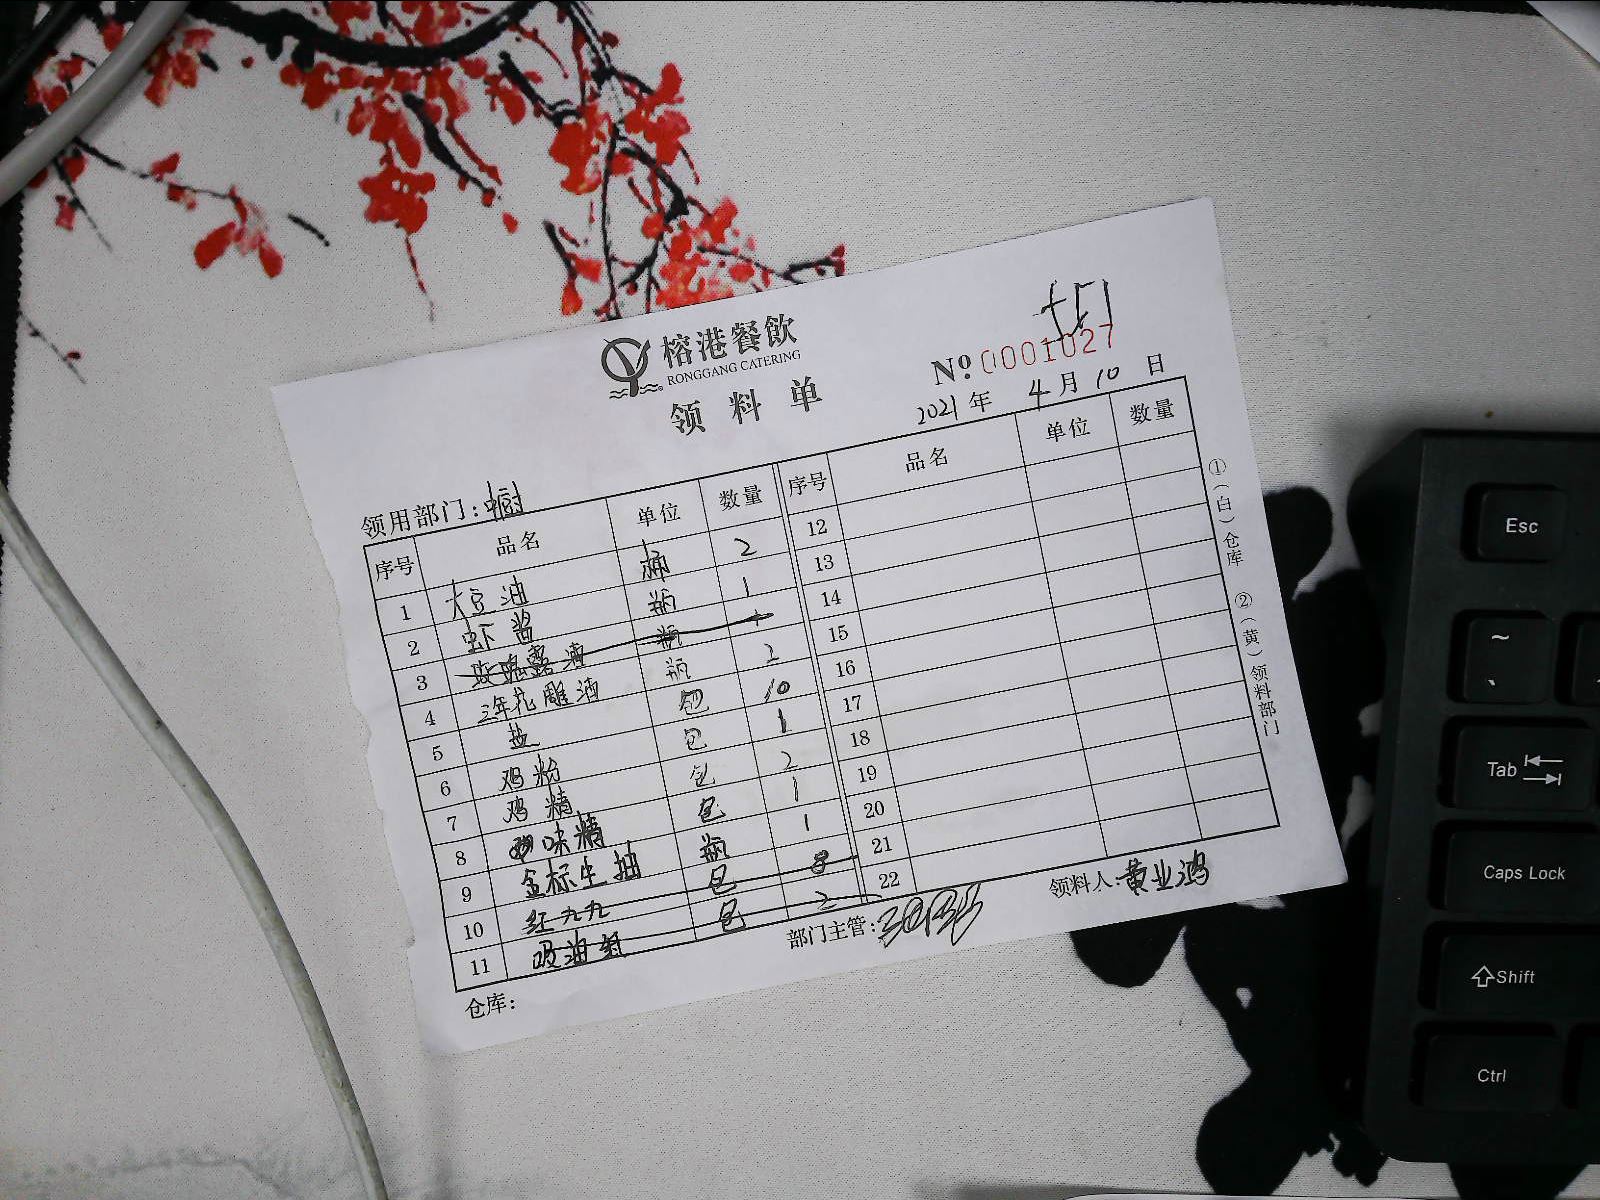 榕港餐饮
RONGGANG CATERING
领料单
№ 0001027
2021年 4月10日
领用部门:中厨
序号 品名 单位 数量 序号 品名 单位 数量
1 大豆油 桶 2 12
2 虾酱 瓶 1 13
3 玫瑰露酒 瓶 1 14
4 三年花雕酒 瓶 2 15
5 盐 包 10 16
6 鸡粉 包 1 17
7 鸡精 包 2 18
8 味精 包 1 19
9 金标生抽 瓶 1 20
10 红九九 包 8 21
11 吸油纸 包 2 22
仓库:
部门主管:
领料人:黄业鸿
①(白)仓库 ②(黄)领料部门
Esc
~
Tab
Caps Lock
Shift
Ctrl